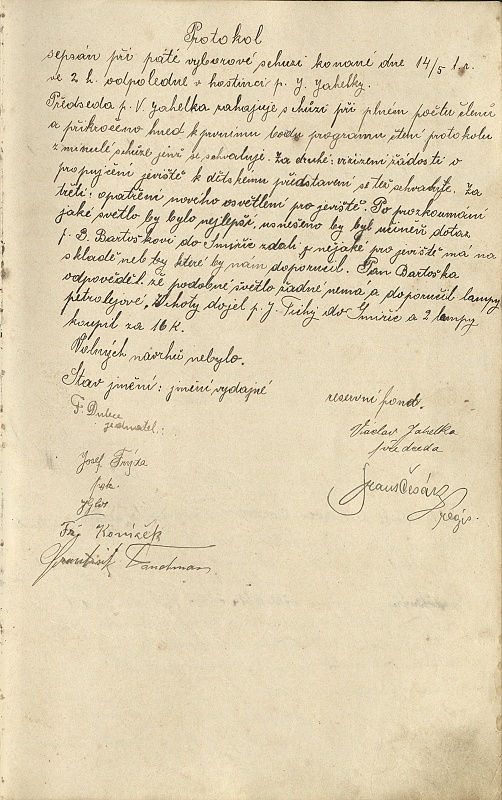 Protokol
sepsán při páté výborové schůzi konané dne 14/5 t.r.
ve 2 h. odpoledne v hostinci p. J. Jahelky.
Předseda p. V. Jahelka zahajuje schůzi při plném počtu členů
a přikročeno hned k prvnímu bodu programu čtení protokolu
z minulé schůze jenž se schvaluje. Za druhé: vyřízení žádosti o
propůjčení jeviště k dětskému představení se též schvaluje. Za
třetí: opatření nového osvětlení pro jeviště. Po prozkoumání
jaké světlo by bylo nejlepší, usnešeno by byl učiněn dotaz
p. Bartoškovi do Smiřic zdali nějaké pro jeviště má na
skladě neb by které by nám doporučil. Pan Bartoška
odpověděl že podobné světlo žádné nemá a doporučil lampy
petrolejové. dojel p. J. Tichý do Smiřic a 2 lampy
koupil za 16 K.
Volných návrhů nebylo.
Stav jmění: jmění výdajné reservní fond.
F. Dubec
jednatel.
Václav Jahelka
předseda
Josef Frýda
pok.
František Česák
regis.
Fr. Koníček
František